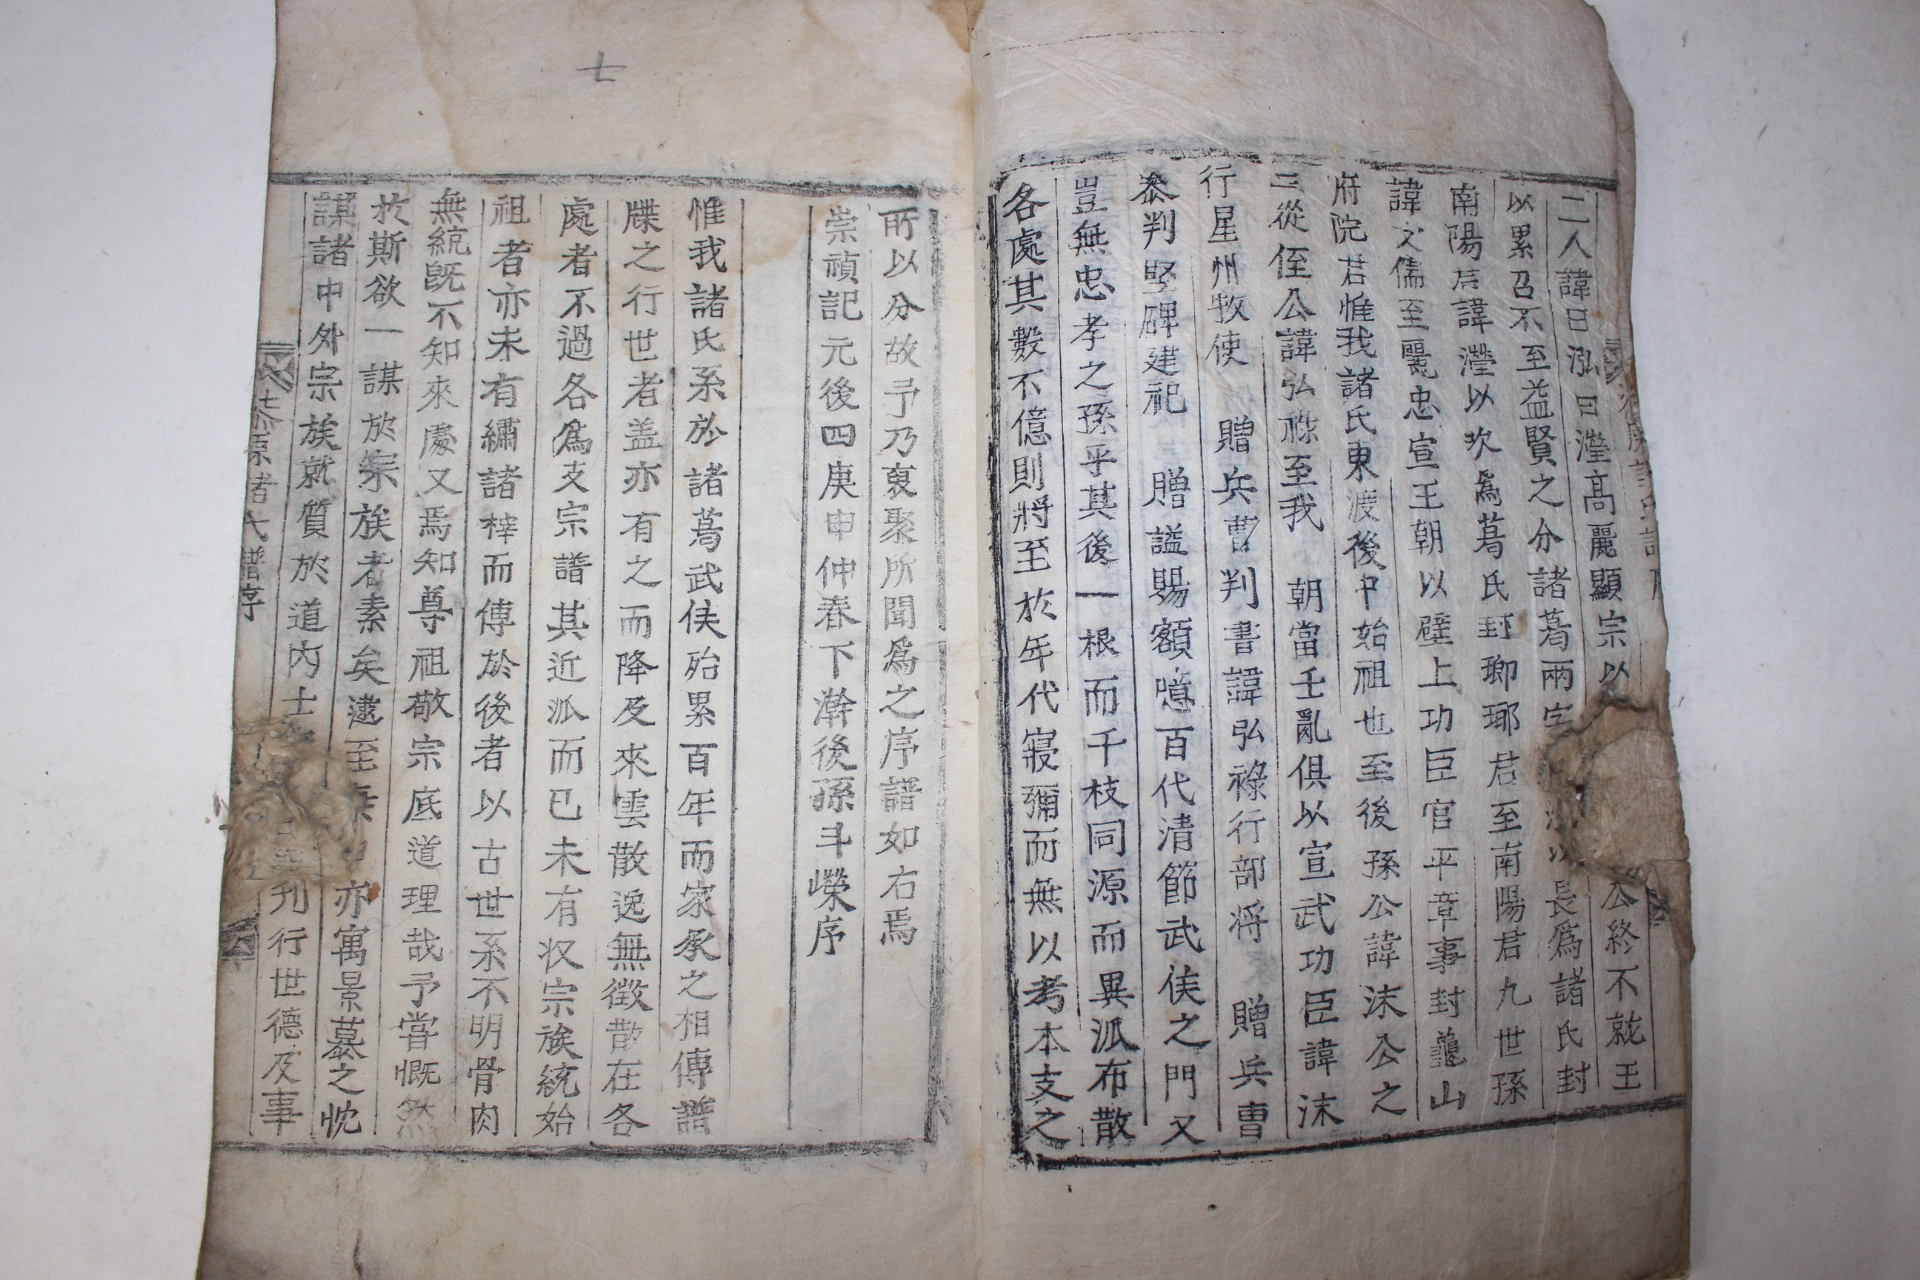 二人諱曰泓曰瀅高麗顯宗以公終不就王
以累召不至益賢之分諸葛兩字以長爲諸氏封
南陽君諱瀅以次爲葛氏封瑯瑘君至南陽君九世孫
諱文儒至麗忠宣王朝以壁上功臣官平章事封龜山
府院君惟我諸氏東渡後中始祖也至後孫公諱沫公之
三從侄公諱弘祿至我 朝當壬亂俱以宣武功臣諱沫
行星州牧使 贈兵曹判書諱弘祿行部將 贈兵曹
叅判竪碑建祀 贈謚賜額噫百代清節武侯之門又
豈無忠孝之孫乎其後一根而千枝同源而異派布散
各處其數不億則將至於年代寢彌而無以考本支之
所以分故予乃裒聚所聞爲之序譜如右焉
崇禎記元後四庚申仲春下澣後孫斗嶸序
惟我諸氏系於諸葛武侯殆累百年而家承之相傳譜
牒之行世者盖亦有之而降及來雲散逸無徵散在各
處者不過各爲支宗譜其近派而已未有収宗族統始
祖者亦未有繡諸梓而傳於後者以古世系不明骨肉
無統旣不知來處又焉知尊祖敬宗底道理哉予嘗慨然
於斯欲一謀於宗族者素矣逮至亦寓景慕之忱
謀諸中外宗族就質於道内士刋行世德及事
七
漆原諸氏譜序